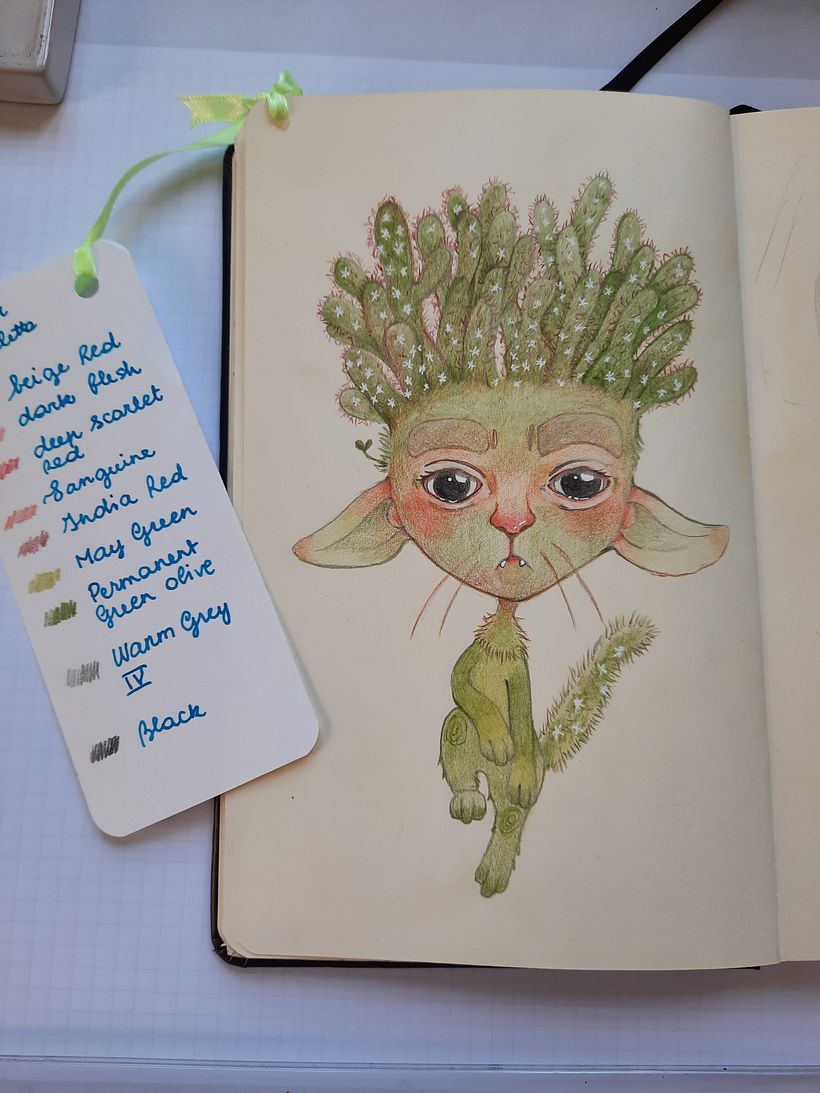 beige Red
dark flesh
deep scarlet
red
Sanguine
India Red
May Green
Permanent
Green olive
Warm Grey
IV
Black